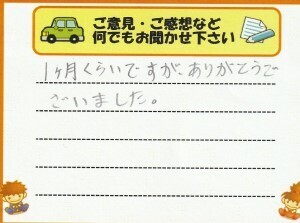 ご意見・ご感想など
何でもお聞かせ下さい
1ヶ月くらいですが、ありがとうで
ございました。